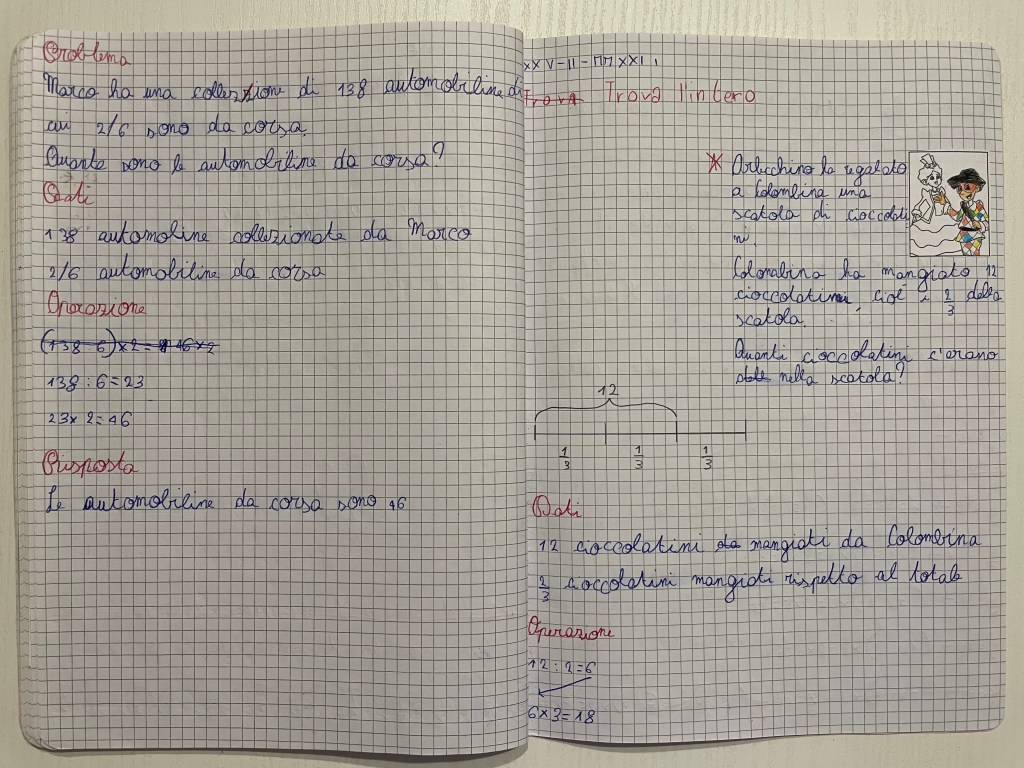 Problema
Marco ha una collezione di 138 automobiline di
cui 2/6 sono da corsa.
Quante sono le automobiline da corsa?
Dati
138 automoline collezionate da Marco
2/6 automobiline da corsa
Operazione
138 : 6 = 23
23 x 2 = 46
Risposta
Le automobiline da corsa sono 46
XXV-II-MMXXII
Trova Trova l'intero
* Arlecchino ha regalato
a Colombina una
scatola di cioccolati
ni.
Colombina ha mangiato 12
cioccolatini, cioè i 2/3 della
scatola.
Quanti cioccolatini c'erano
nella scatola?
12
1/3 1/3 1/3
Dati
12 cioccolatini da mangiati da Colombina
2/3 cioccolatini mangiati rispetto al totale
Operazione
12 : 2 = 6
6 x 3 = 18